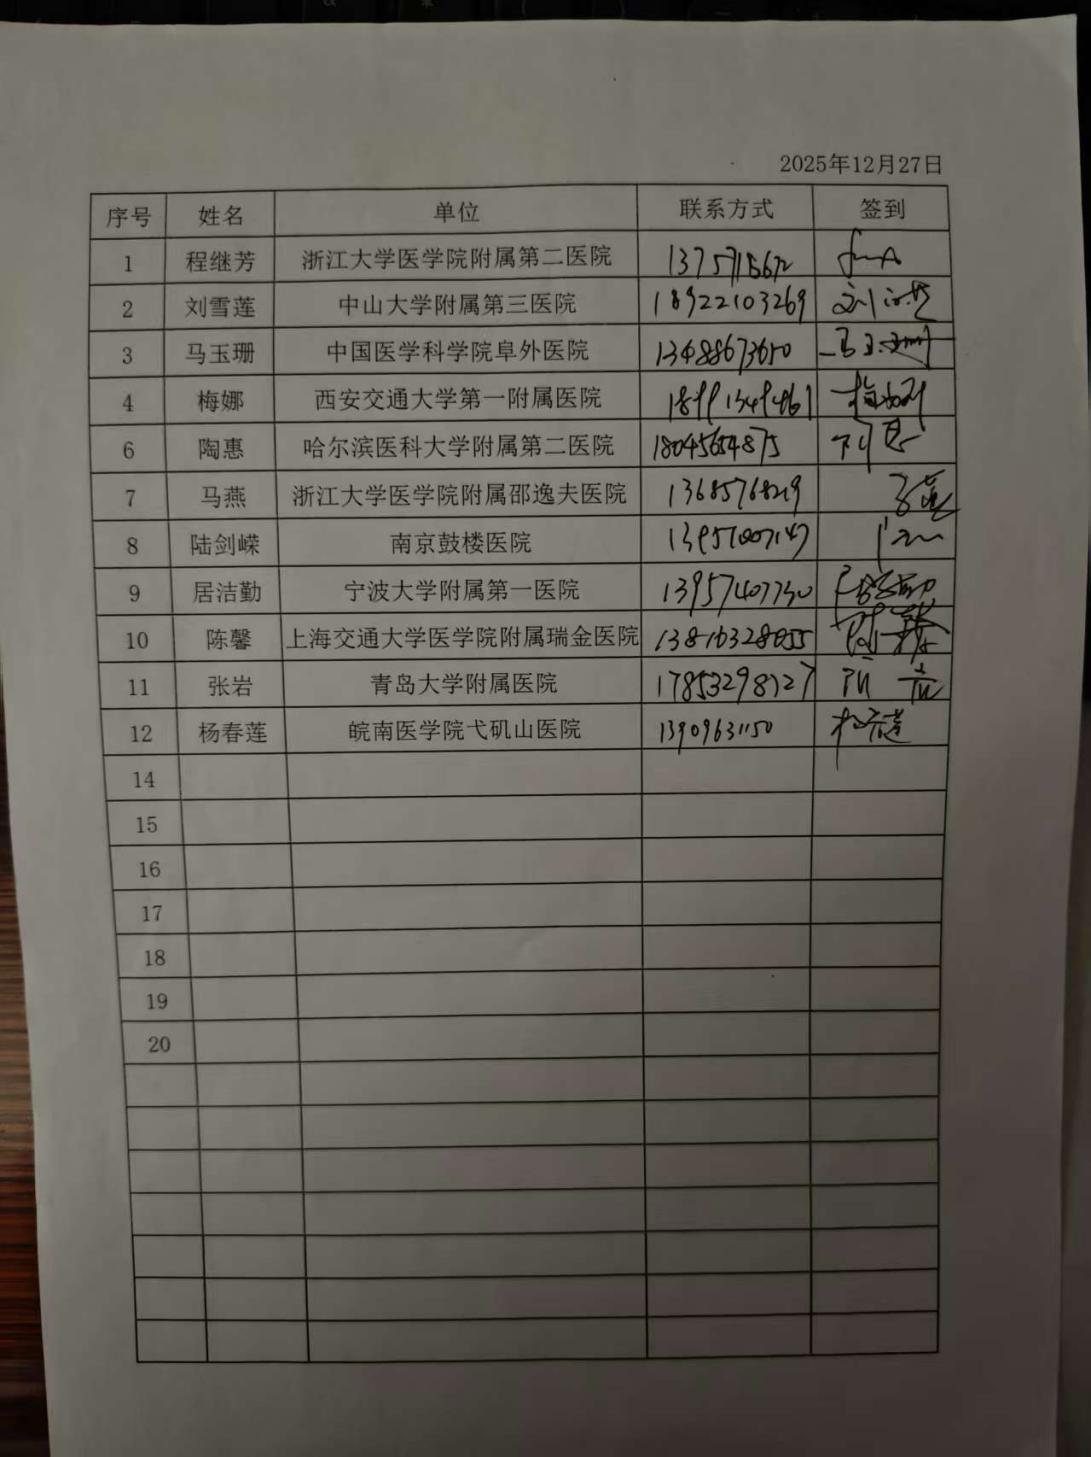 2025年12月27日
序号 姓名 单位 联系方式 签到
1 程继芳 浙江大学医学院附属第二医院
2 刘雪莲 中山大学附属第三医院 18922103269
3 马玉珊 中国医学科学院阜外医院 13488673650
4 梅娜 西安交通大学第一附属医院 梅娜
6 陶惠 哈尔滨医科大学附属第二医院 18045654875
7 马燕 浙江大学医学院附属邵逸夫医院 马燕
8 陆剑嵘 南京鼓楼医院
9 居洁勤 宁波大学附属第一医院 13957407730
10 陈馨 上海交通大学医学院附属瑞金医院 13816328055 陈馨
11 张岩 青岛大学附属医院 17853298727
12 杨春莲 皖南医学院弋矶山医院 13909631150 杨春莲
14
15
16
17
18
19
20